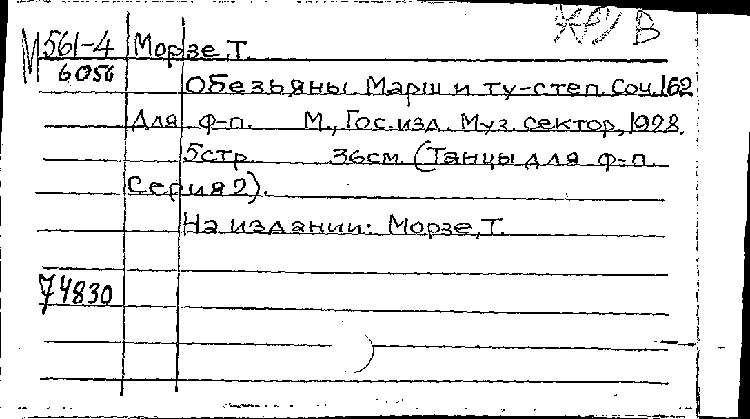 В
М 561-4 Морзе, Т.
6056
Обезьяны. Марш и ту-степ. Соч. 162
Для ф-п. М., Гос. изд. Муз. сектор, 1928.
5стр. 36см. (Танцы для ф-п.
Серия 2).
На издании: Морзе, Т.
74830